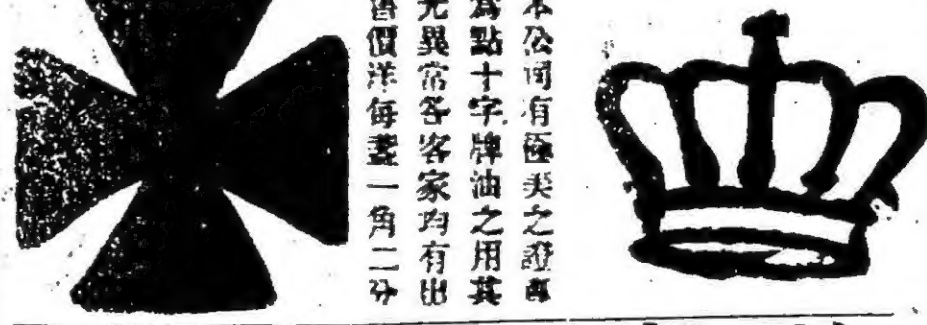 本公司有極美之證專
為點十字牌油之用其
光異常各客家均有出
售價洋每盞一角二分